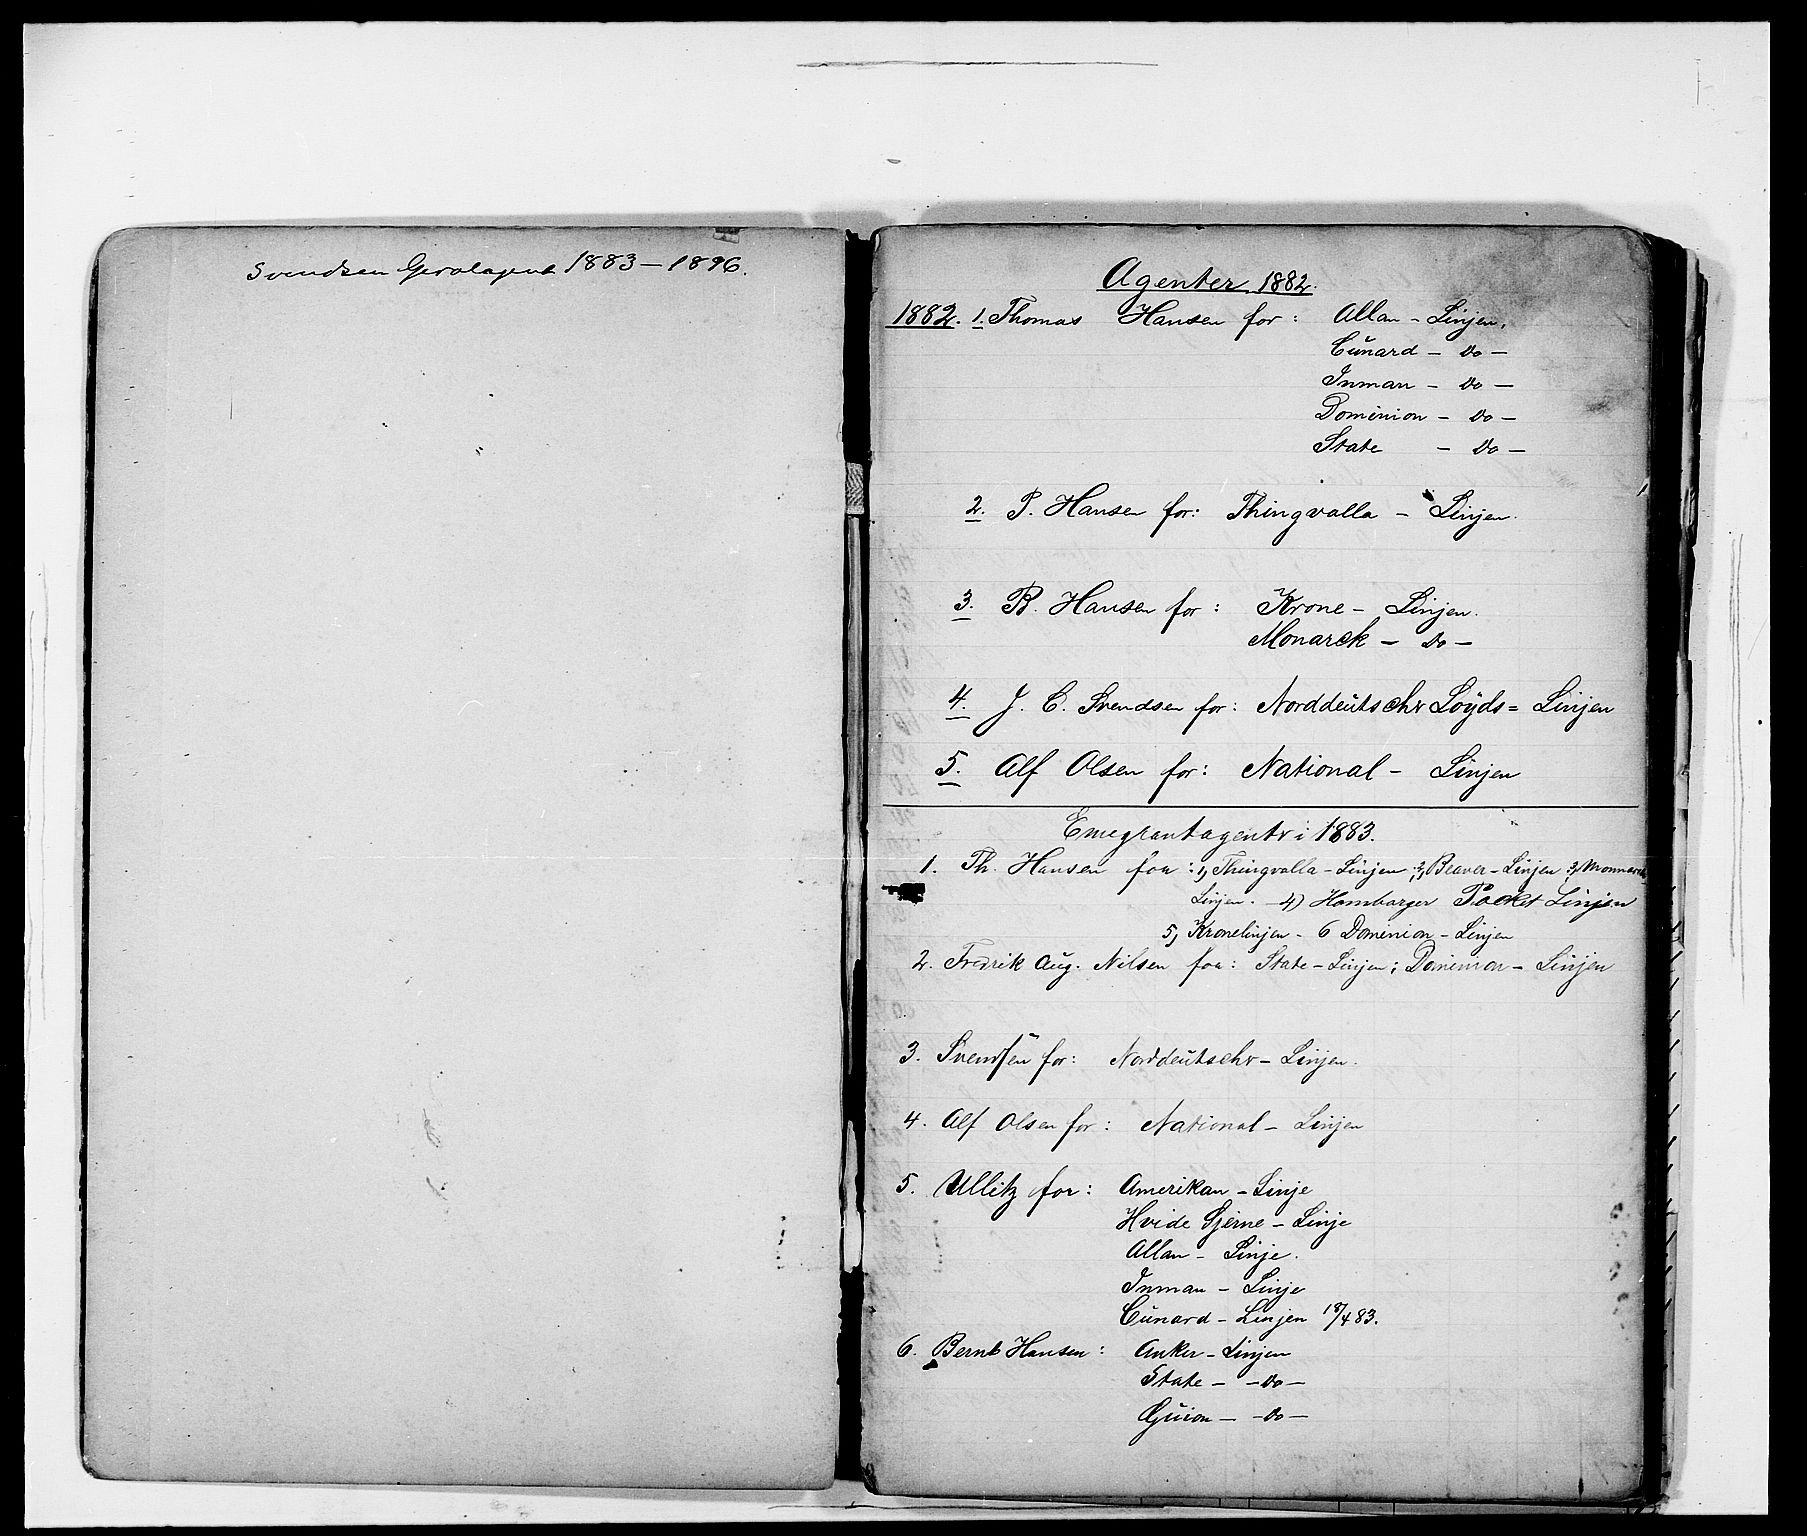 Svendsen Gerolagent 1883 – 1896.
Agenter 1882.
1882. 1. Thomas Hansen for: Allan – Linjen.
Cunard – Do –
Inman – Do –
Dominion – Do –
State – Do –
2. P. Hansen for: Thingvalla – Linjen.
3. B. Hansen for: Krone – Linjen.
Monarck – Do –
4. J. C. Svendsen for: Norddeutscher Loyds = Linjen
5. Alf Olsen for: National – Linjen
Emegrantagenter i 1883.
1. Th. Hansen for: 1, Thingvalla – Linjen; 2, Beaver – Linjen 3,
Linjen. – 4) Hamburger Packet Linjen
5, Kronelinjen – 6 Dominion – Linjen
2. Fredrik Aug. Nilsen for: State – Linjen; Dominion – Linjen
3. Svendsen for: Norddeutscher – Linjen.
4. Alf Olsen for: National – Linjen
5. Ullitz for: Amerikan – Linje
Hvide Stjerne – Linje
Allan – Linje.
Inman – Linje
Cunard – Linjen 18/4 83.
6. Bernt Hansen: Anker – Linjen
State – – Do –
Guion – – Do –